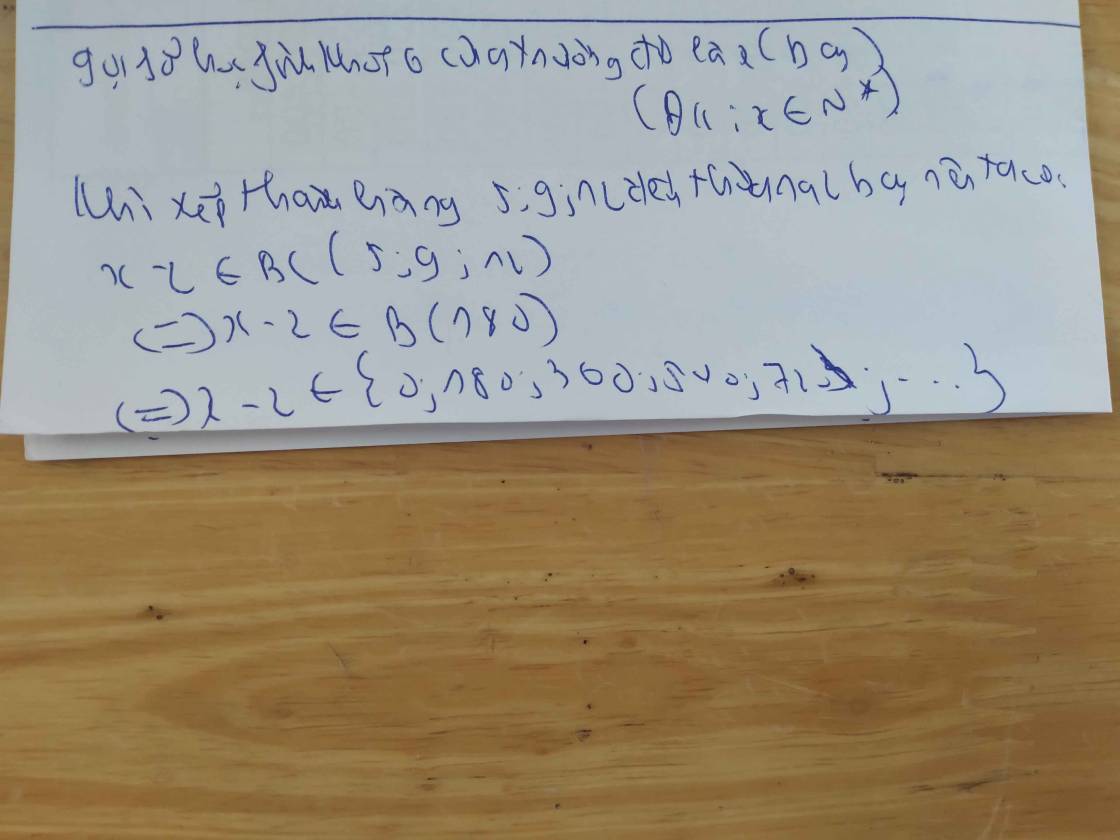 gọi số học sinh khối 6 của trường đó là x (bạn)
(ĐK ; x ∈ N*)
Khi xếp thành hàng 5 ; 9 ; 12 đều thừa 2 bạn nên ta có:
x - 2 ∈ BC ( 5 ; 9 ; 12 )
(=) x - 2 ∈ B ( 180 )
(=) x - 2 ∈ { 0 ; 180 ; 360 ; 540 ; 720 ; ... }